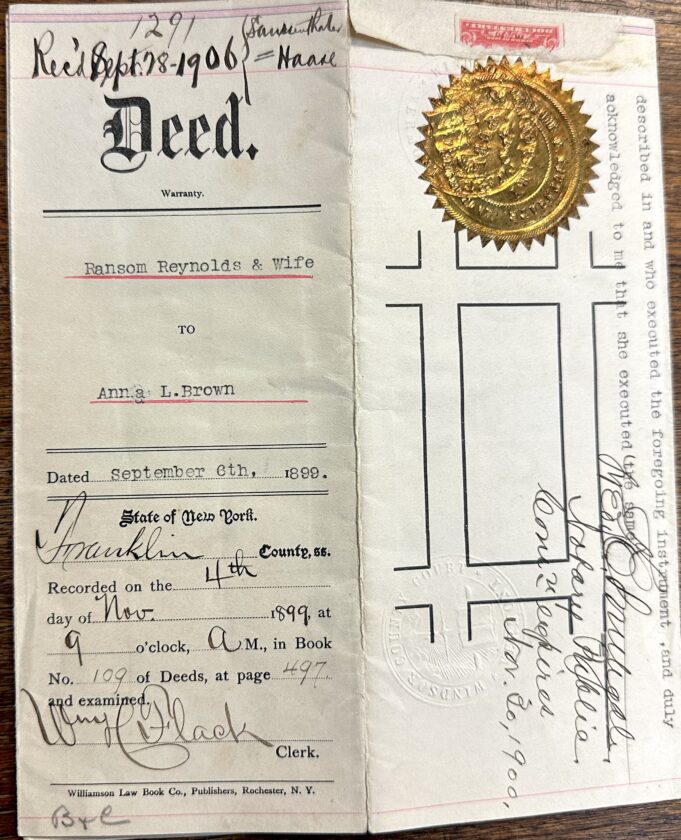 1291
Rec'd Sept. 28-1906
= Haase
Deed.
Warranty.
Ransom Reynolds & Wife
TO
Anna L.Brown
Dated September 6th, 1899.
State of New York.
Franklin County, ss.
Recorded on the 4th
day of Nov. 1899, at
9 o'clock, A M., in Book
No. 109 of Deeds, at page 497
and examined.
Wm C Flack
Clerk.
Williamson Law Book Co., Publishers, Rochester, N. Y.
B & C
described in and who executed the foregoing instrument ,and duly
acknowledged to me that she executed the same.
Notary Public.
Com. expires Nov. 20, 1900.
WINDSOR COUNTY COURT